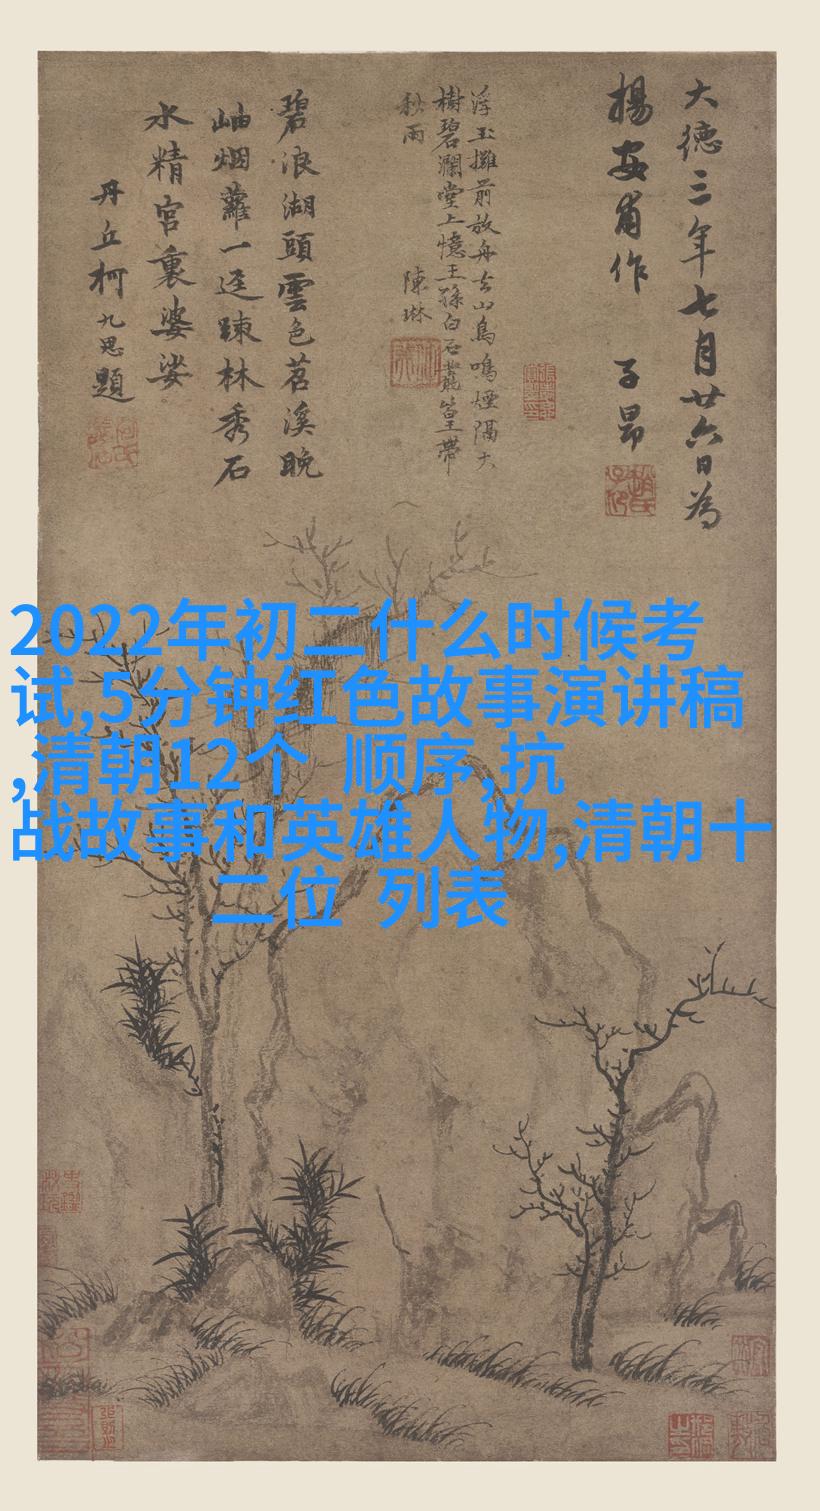 大德三年七月廿六日為
楊安甫作 子昂
浮玉攤前放舟去山鳥鳴煙隔大
樹碧瀾堂上憶王孫白石叢篁帶
秋雨 陳琳
碧浪湖頭雲色苕溪晚
岫烟蘿一逕踈林秀石
水精宮裏婆娑
丹丘柯九思題
2022年初二什么时候考
试,5分钟红色故事演讲稿
,清朝12个 顺序,抗
战故事和英雄人物,清朝十
二位 列表